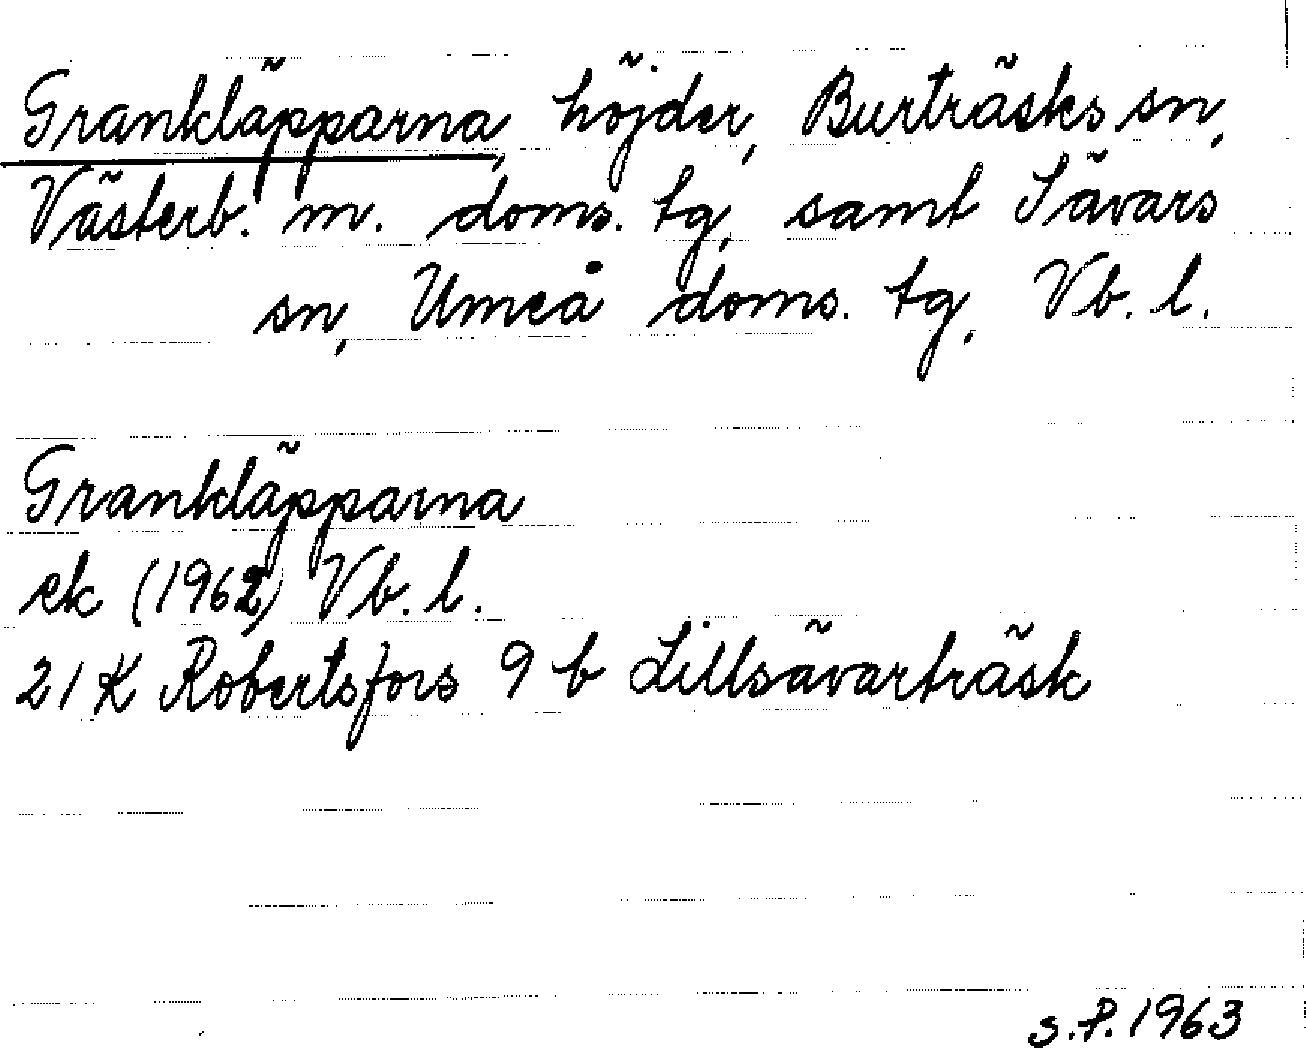 Grankläpparna, höjder, Burträsks sn,
Västerb. m. doms. tg, samt Sävars
sn, Umeå doms. tg, Vb. l.
Grankläpparna
ek (1962) Vb. l.
21 K Robertsfors 9 b Lillsävarträsk
S.P. 1963